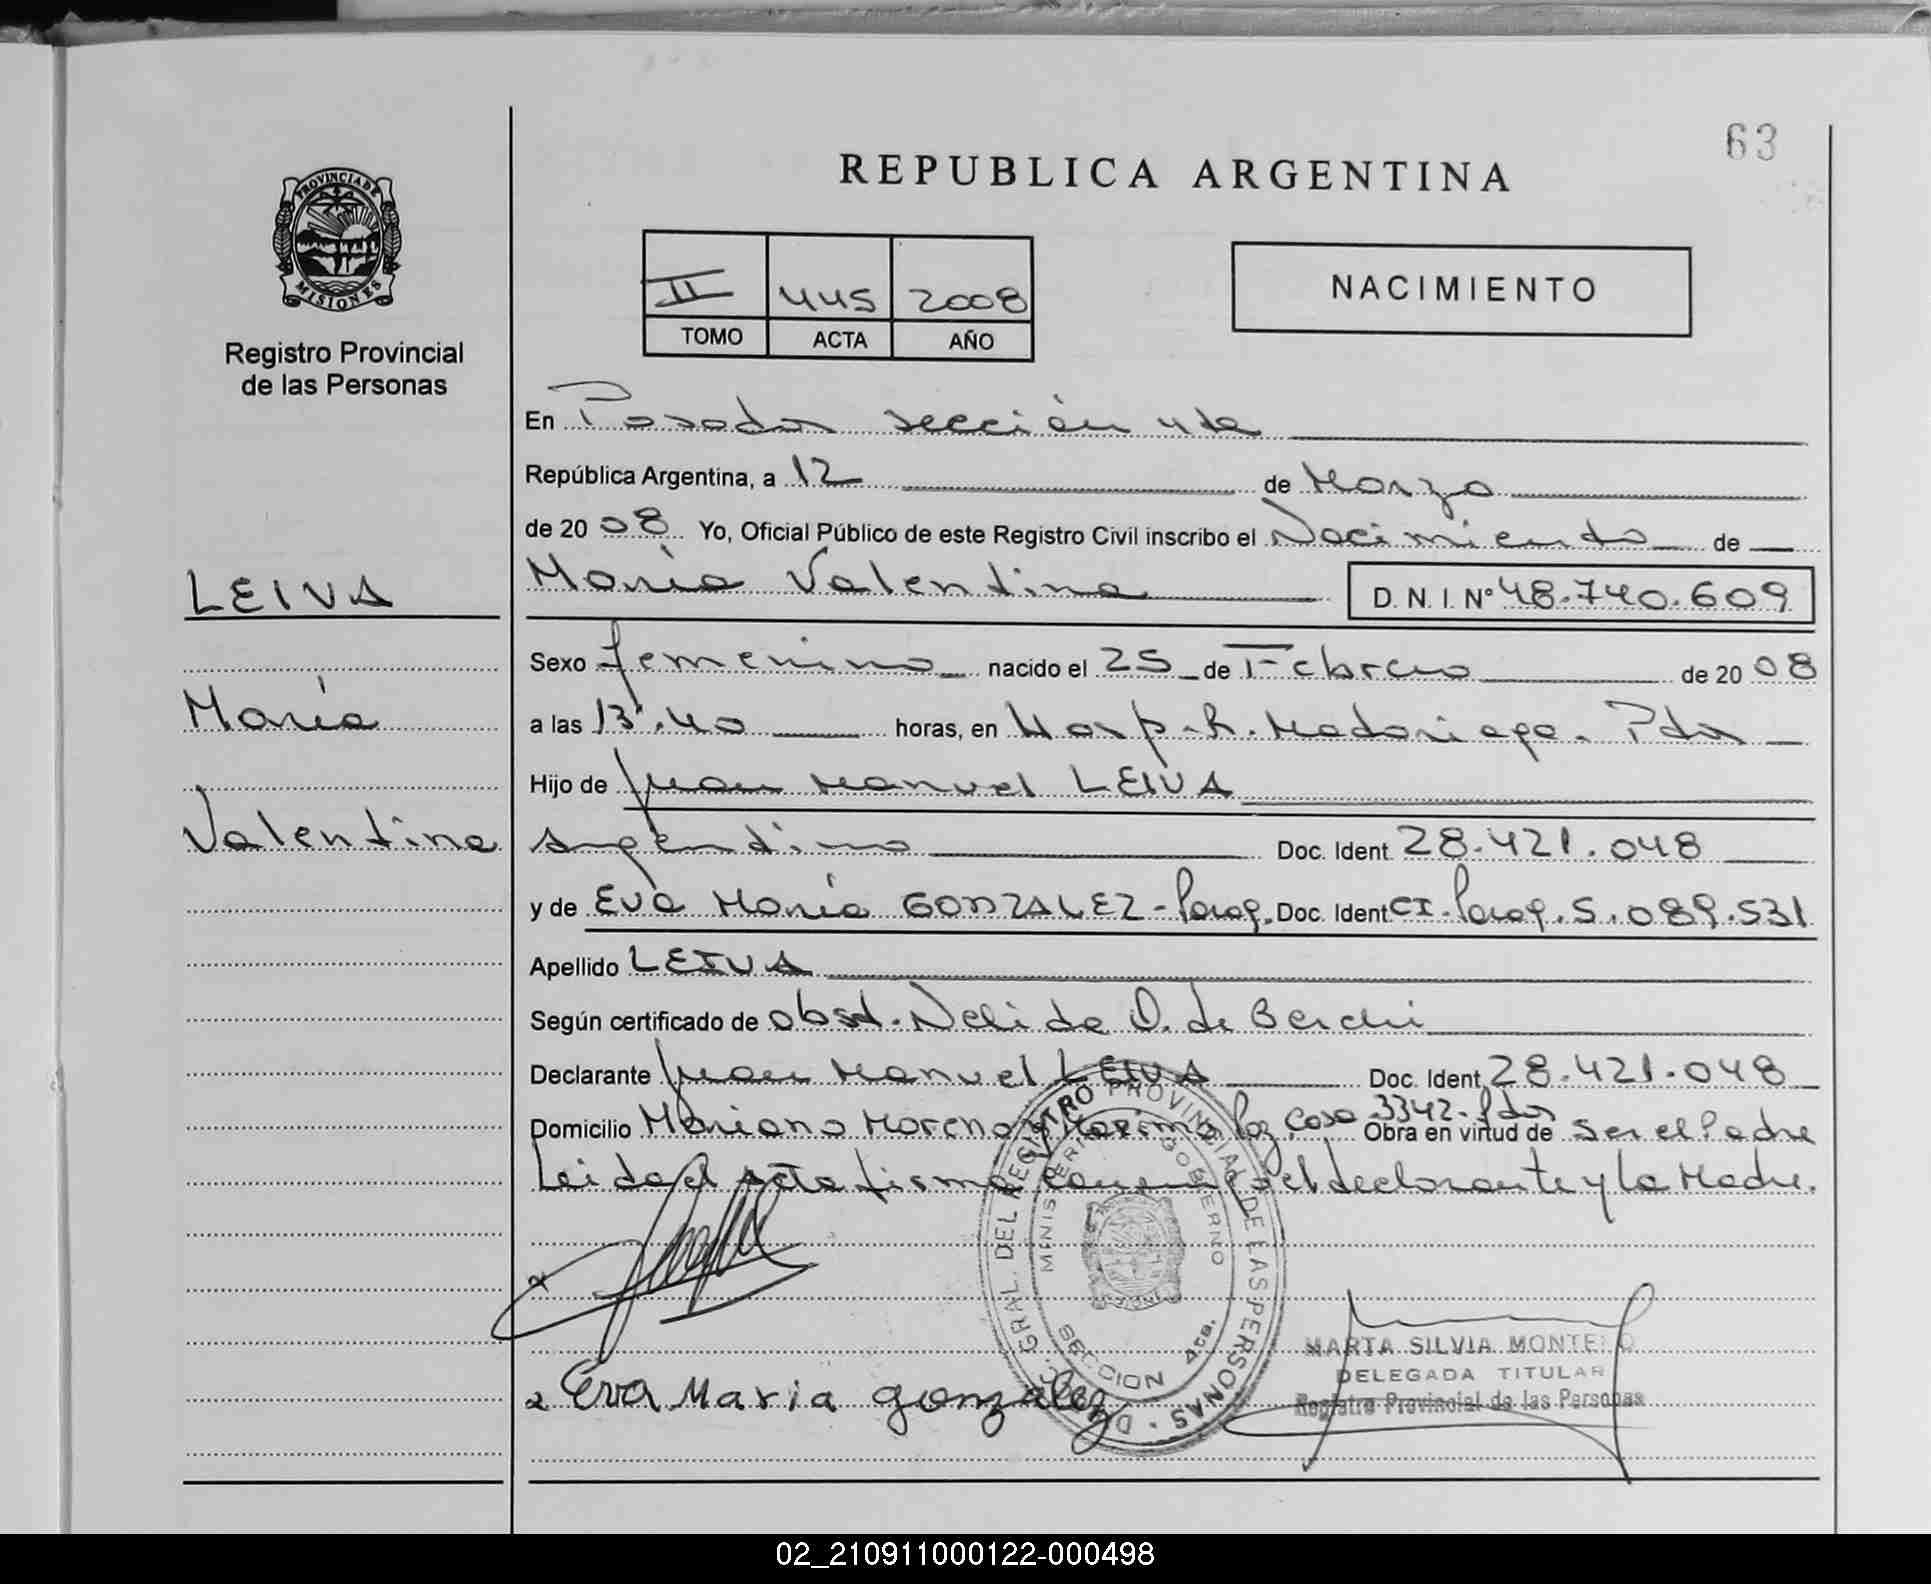 63
PROVINCIA DE
MISIONES
Registro Provincial
de las Personas
REPUBLICA ARGENTINA
II 445 2008
TOMO ACTA AÑO
NACIMIENTO
En Posadas sección 4ta
República Argentina, a 12 de Marzo
de 2008 Yo, Oficial Público de este Registro Civil inscribo el Nacimiento de
LEIVA
María Valentina D.N.I. Nº 48.740.609
Sexo femenino nacido el 25 de Febrero de 2008
María
a las 13:40 horas, en Hosp. R. Madariaga. Pdas
Hijo de Juan Manuel LEIVA
Valentina
argentino Doc. Ident. 28.421.048
y de Eva María GONZALEZ - Parag. Doc. Ident CI. Parag. 5.089.531
Apellido LEIVA
Según certificado de obst. Nelida O. de Berchi
Declarante Juan Manuel LEIVA Doc. Ident. 28.421.048
Domicilio Mariano Moreno y Maximo Paz Casa 3342. Pdas Obra en virtud de ser el Padre
Leida el acta firma el declarante y la Madre.
D. GRAL. DEL REGISTRO PROVINCIAL DE LAS PERSONAS
MINISTERIO GOBIERNO
SECCION 4ta.
MARTA SILVIA MONTERO
DELEGADA TITULAR
Registro Provincial de las Personas
Eva Maria gonzalez
02_210911000122-000498